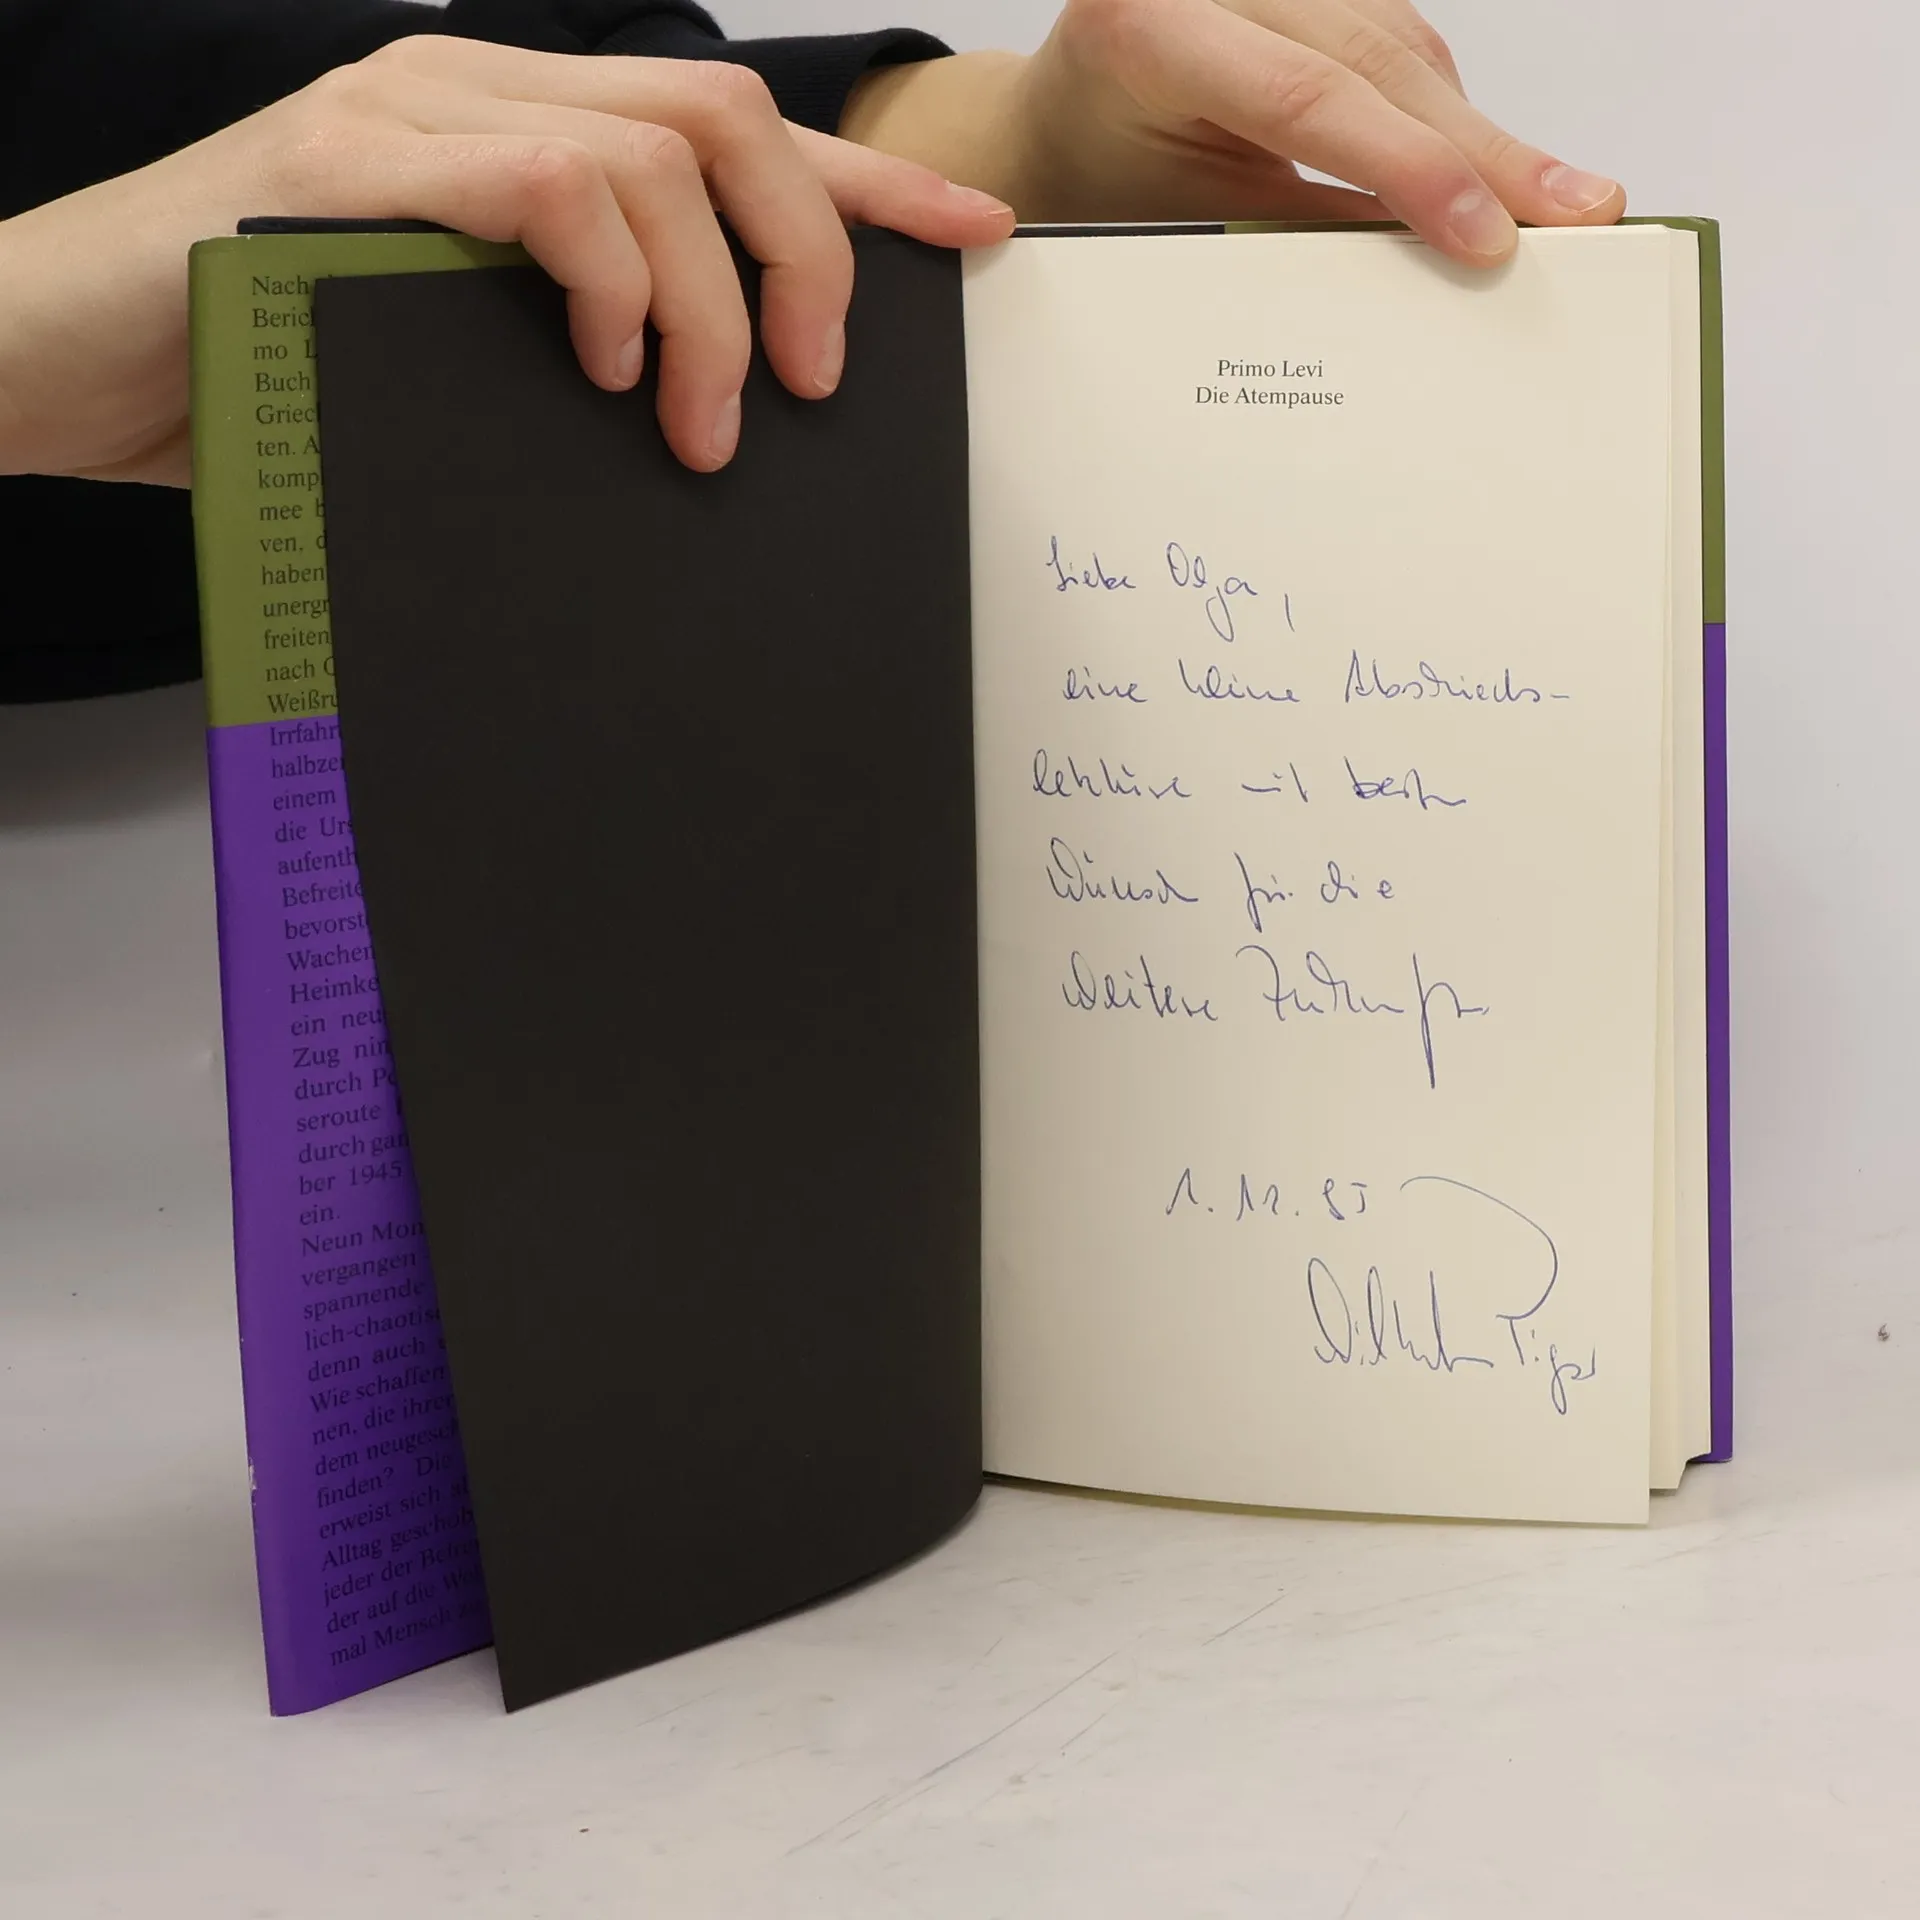 Nach
Berich
mo L
Buch
Griech
ten. A
komp
mee b
ven, d
haben
unergr
freiten
nach O
Weißru
Irrfahr
halbze
einem
die Urs
aufenth
Befreite
bevorst
Wachen
Heimke
ein neu
Zug nim
durch Po
seroute
durch gan
ber 1945
ein.
Neun Mon
vergangen
spannende
lich-chaotis
denn auch
Wie schaffen
nen, die ihren
dem neugesch
finden? Die
erweist sich al
Alltag geschob
jeder der Befre
der auf die Wo
mal Mensch zu
Primo Levi
Die Atempause
Liebe Olga,
eine kleine Abschieds-
lektüre mit besten
Wünschen für die
weitere Zukunft.
1.12.95
Wilhelm